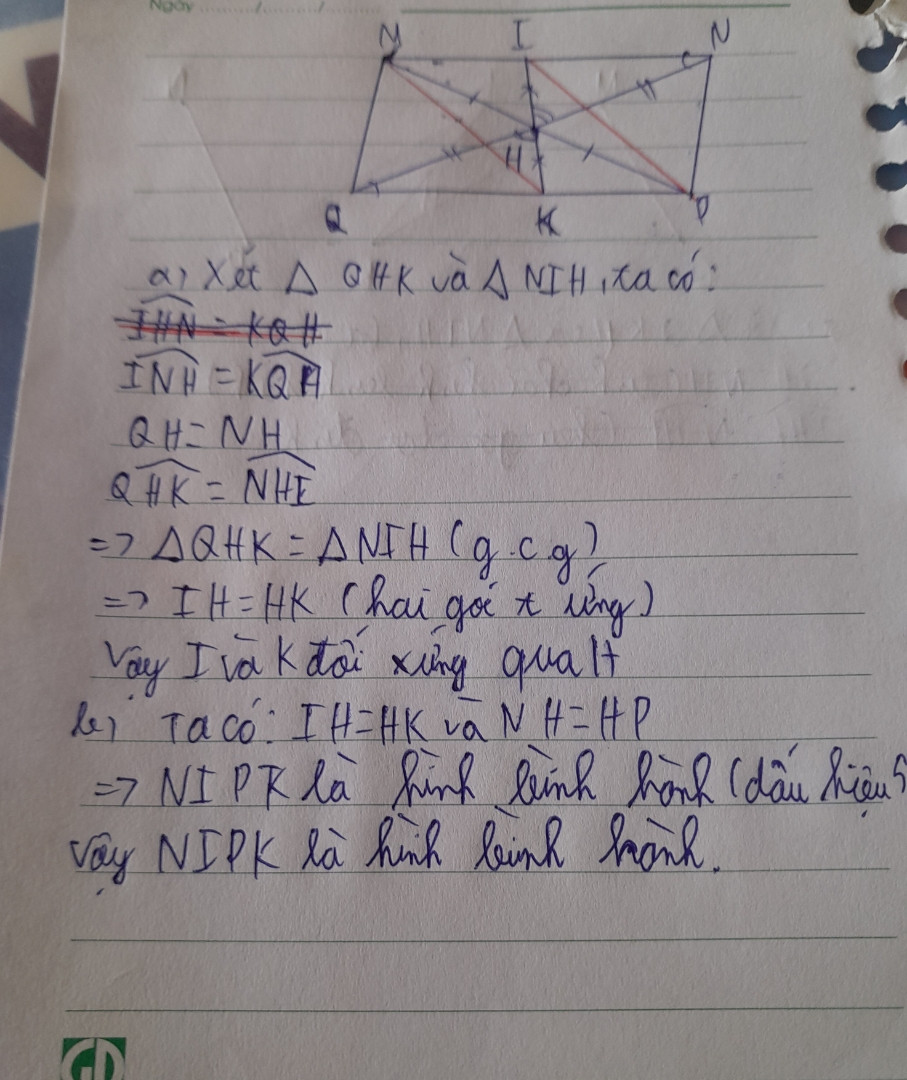 Ngày ......../......../........
M I N
H
Q K P
a, Xét Δ QHK và Δ NIH, ta có:
IHN = KQH
INH = KQH
QH = NH
QHK = NHI
=> ΔQHK = ΔNIH (g.c.g)
=> IH = HK (hai goć t ứng)
Vậy I và K đối xứng qua H
b, Ta có: IH = HK và NH = HP
=> NIPK là hình bình hành (dấu hiệu 5
Vậy NIPK là hình bình hành.
GD